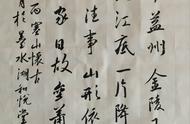 益州金陵
江底一片降
往事山形依
家日故垒萧
西塞山怀古
月於墨水湖和悦堂